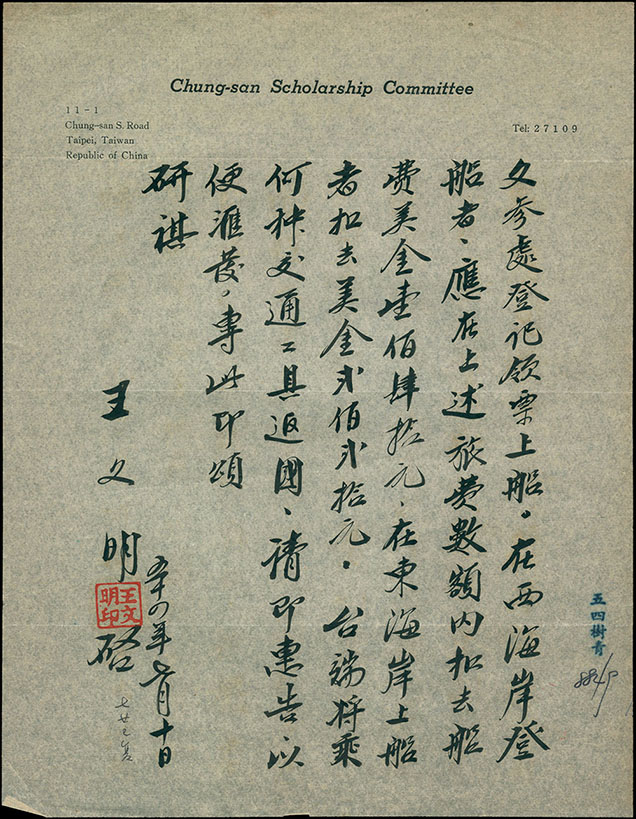 Chung-san Scholarship Committee
11-1
Chung-san S. Road
Taipei, Taiwan
Republic of China
Tel: 27109
文參處登記領票上船。在西海岸登
船者、應在上述旅費數額內扣去船
費美金壹佰肆拾元、在東海岸上船
者扣去美金弍佰弍拾元。台端將乘
何种交通工具返國、請即惠告以
便滙發。專此即頌
研祺
王文明啓
王文明印
五十四年七月十日
五四樹青